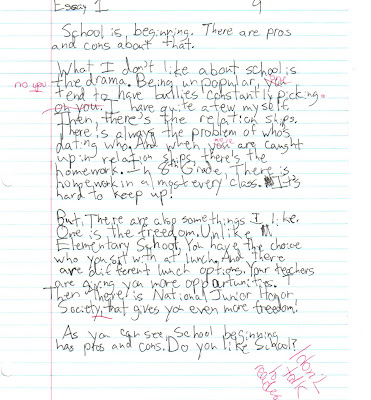 Essay 1 9
School is, beginning. There are pros
and cons about that.
What I don't like about school is
the drama. Being unpopular, you
no you
tend to have bullies constantly picking
on you. I have quite a few myself.
Then, there's the relation ships.
There is always the problem of who's
dating who. And when you're caught
up in relation ships, there's the
homework. In 8th Grade, There is
homework in almost every class. It's
hard to keep up!
But. There are also some things I like.
One is the freedom. Unlike
Elementary School, You have the choice
who you sit with at lunch. And there
are different lunch options. Your teachers
are giving you more opportunities.
Then there is National Junior Honor
Society, that gives you even more freedom!
As you can see, School beginning
has pros and cons. Do you like School?
don't
talk
to
reader